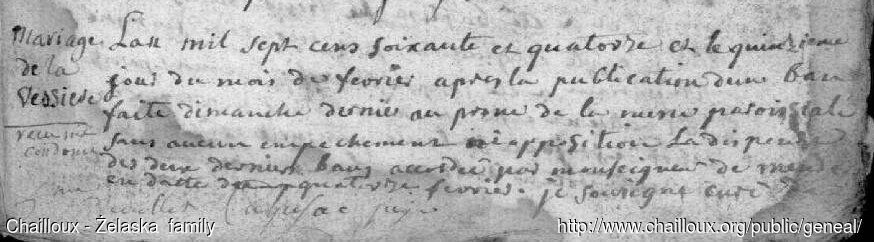 Mariage
de la
Vessiere
Lan mil sept cens soixante et quatorze et le quinzieme
jour du mois de fevrier apres la publication dun ban
faite dimanche dernier au prone de la messe paroissiale
sans aucun empechement ni opposition La dispense
des deux derniers bans accordée par monseigneur de mende
en datte du quatorze fevrier. je soussigné curé
Chailloux - Żelaska family
http://www.chailloux.org/public/geneal/